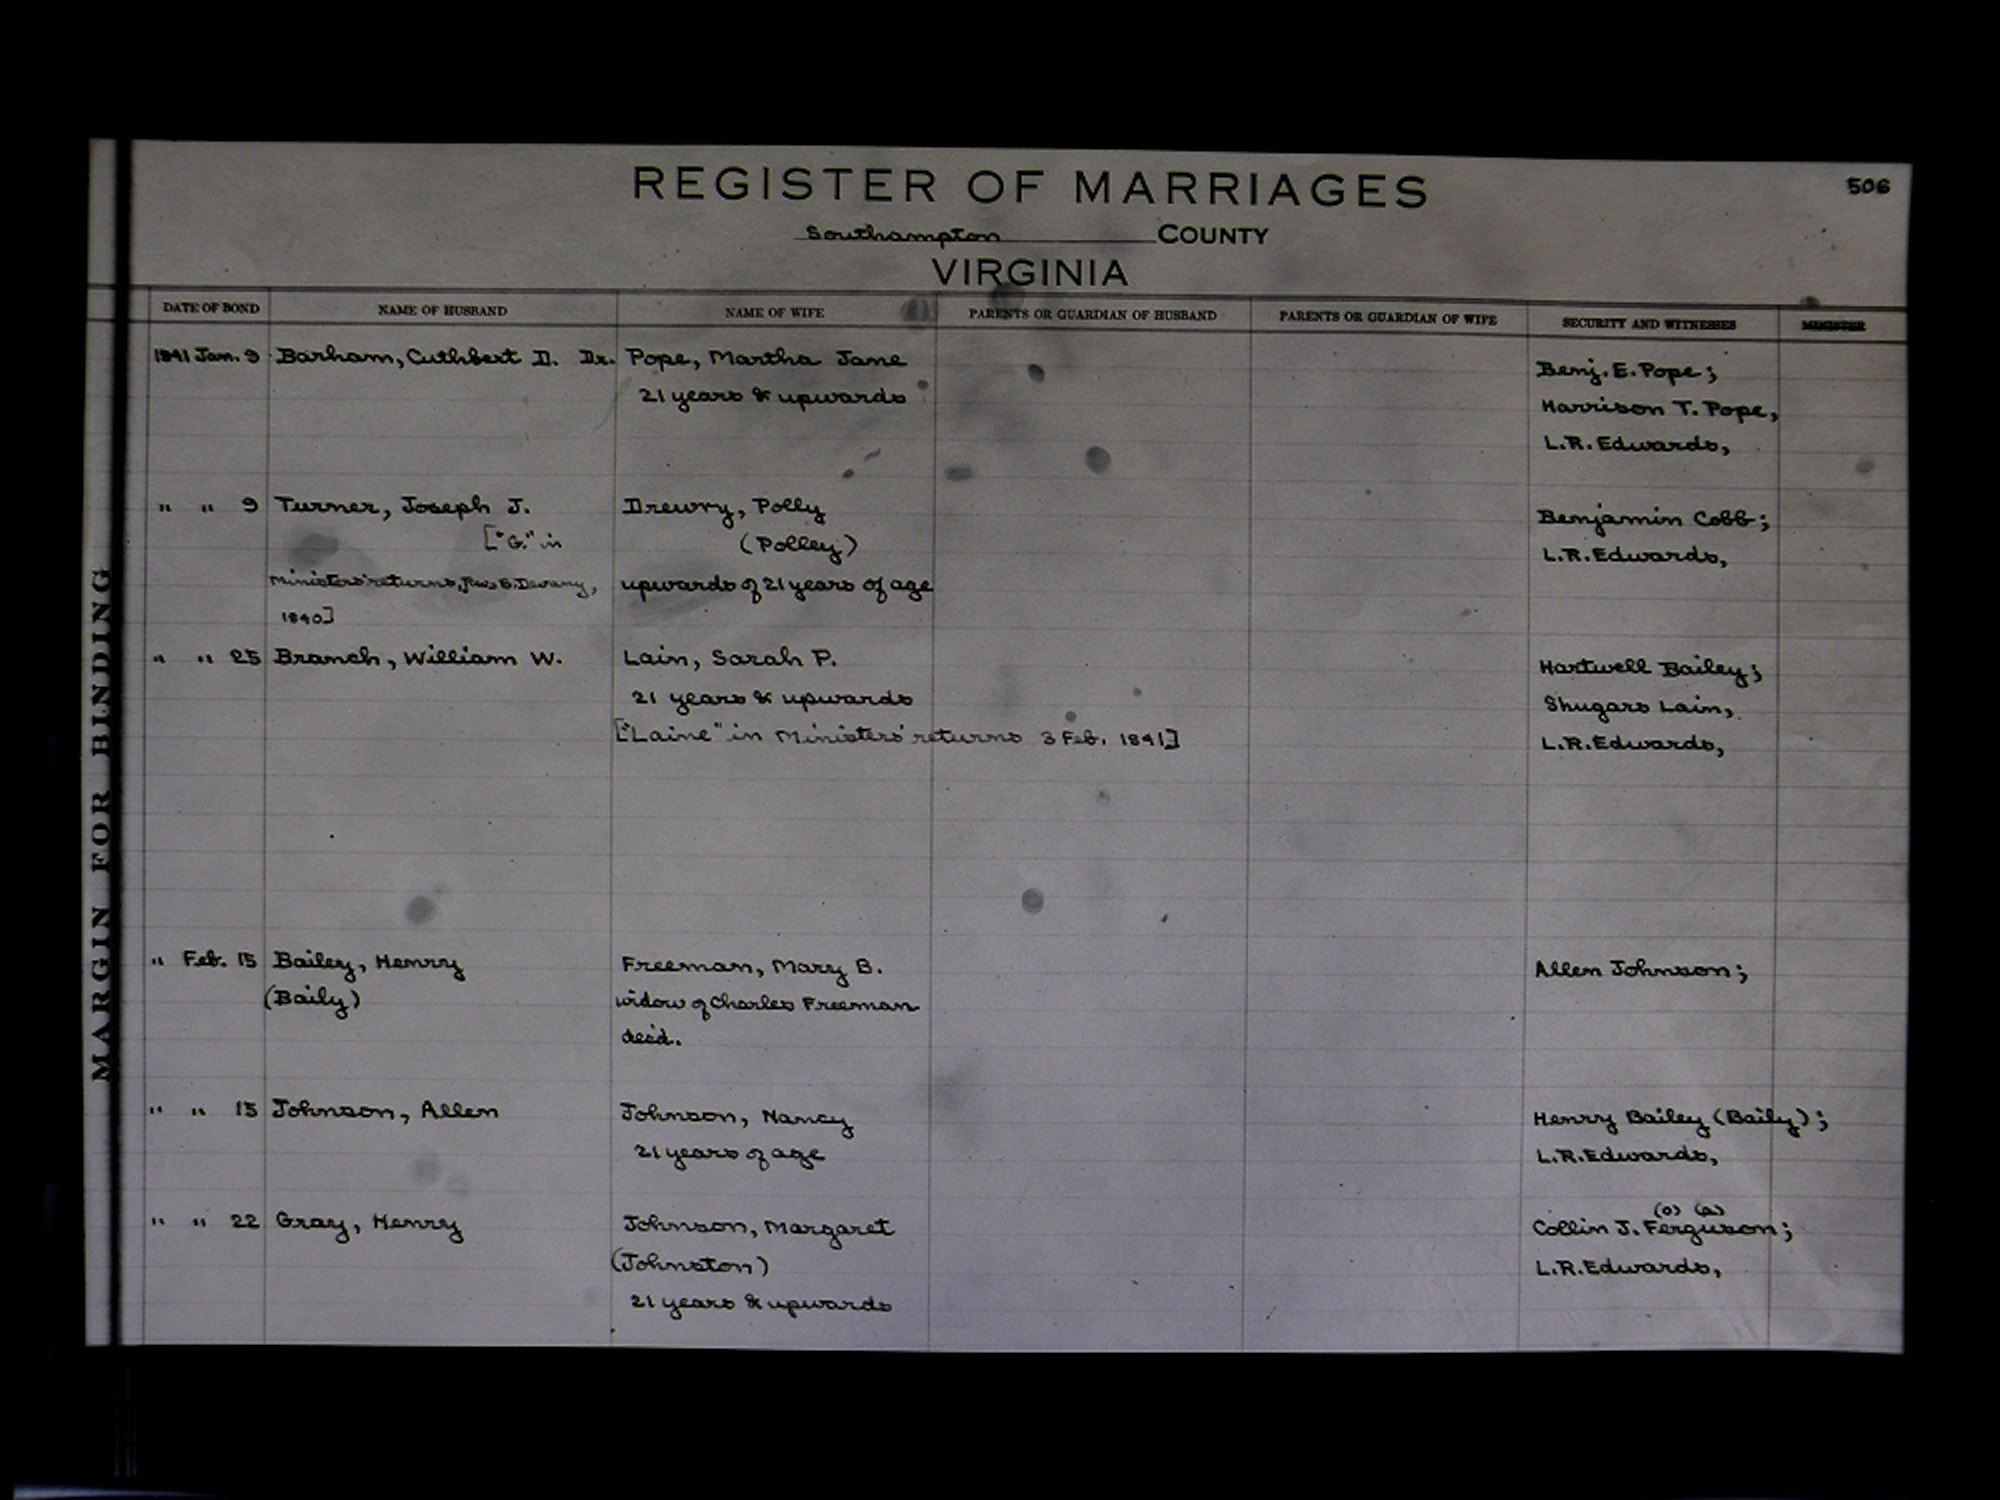 REGISTER OF MARRIAGES
506
Southampton COUNTY
VIRGINIA
MARGIN FOR BINDING
DATE OF BOND NAME OF HUSBAND NAME OF WIFE PARENTS OR GUARDIAN OF HUSBAND PARENTS OR GUARDIAN OF WIFE SECURITY AND WITNESSES MINISTER
1841 Jan. 9 Barham, Cuthbert D. Dr. Pope, Martha Jane Benj. E. Pope;
21 years & upwards Harrison T. Pope,
L.R. Edwards,
" " 9 Turner, Joseph J. Drewry, Polly Benjamin Cobb;
["G." in (Polley) L.R. Edwards,
Ministers' returns, B. Devany, upwards of 21 years of age
1840]
" " 25 Branch, William W. Lain, Sarah P. Hartwell Bailey;
21 years & upwards Shugars Lain,
["Laine" in Ministers' returns 3 Feb. 1841] L.R. Edwards,
" Feb. 15 Bailey, Henry Freeman, Mary B. Allen Johnson;
(Baily) widow of Charles Freeman
decd.
" " 15 Johnson, Allen Johnson, Nancy Henry Bailey (Baily);
21 years of age L.R. Edwards,
(o) (a)
" " 22 Gray, Henry Johnson, Margaret Collin J. Ferguson;
(Johnston) L.R. Edwards,
21 years & upwards